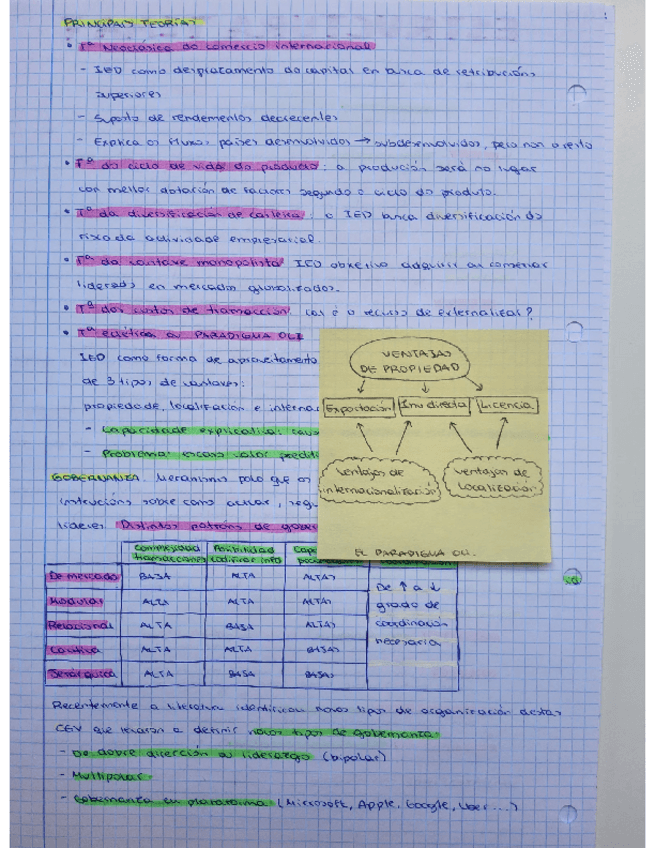 PRINCIPAIS TEORÍAS
• Tª Neoclásica do comercio internacional
- IED como desprazamento do capital en busca de retribucións
superiores
- Suposto de rendementos decrecentes
- Explica os fluxos países desenvolvidos → subdesenvolvidos, pero non o resto
• Tª do ciclo de vida do produto: a produción será no lugar
con mellor dotación de factores segundo o ciclo do produto.
• Tª da diversificación de carteira: o IED busca diversificación do
risco da actividade empresarial.
• Tª da vantaxe monopolista IED obxetivo adquirir ou conservar
liderados en mercados globalizados.
• Tª dos custos de transacción: cal é o recurso de externalizar?
• Tª ecléctica ou PARADIGMA OLI
IED como forma de aproveitamento
de 3 tipos de vantaxes:
propiedade, localización e interna
- Capacidade explicativa: caus
- Problema: escaso valor predit
VENTAJAS
DE PROPIEDAD
Exportación Inv. directa Licencia
ventajas de
internacionalización
ventajas de
localización
EL PARADIGMA OLI.
GOBERNANZA. Mecanismo polo que os
instrucións sobre como actuar, reg
líderes Distintos patróns de gober
Complexidad Posibilidad Cap
transacciones codificar info
De mercado BAJA ALTA ALTAS De ↑ a ↓
Modular ALTA ALTA ALTAS grado de
Relacional ALTA BAJA ALTAS coordinación
Cautiva ALTA ALTA BAJAS necesaria
Jerárquica ALTA BAJA BAJAS
Recentemente a literatura identificou novos tipos de organización destas
CGV que levaron a definir novos tipos de gobernanza
- De dobre dirección ou liderazgo (bipolar)
- Multipolar
- Gobernanza en plataforma (Microsoft, Apple, Google, Uber...)